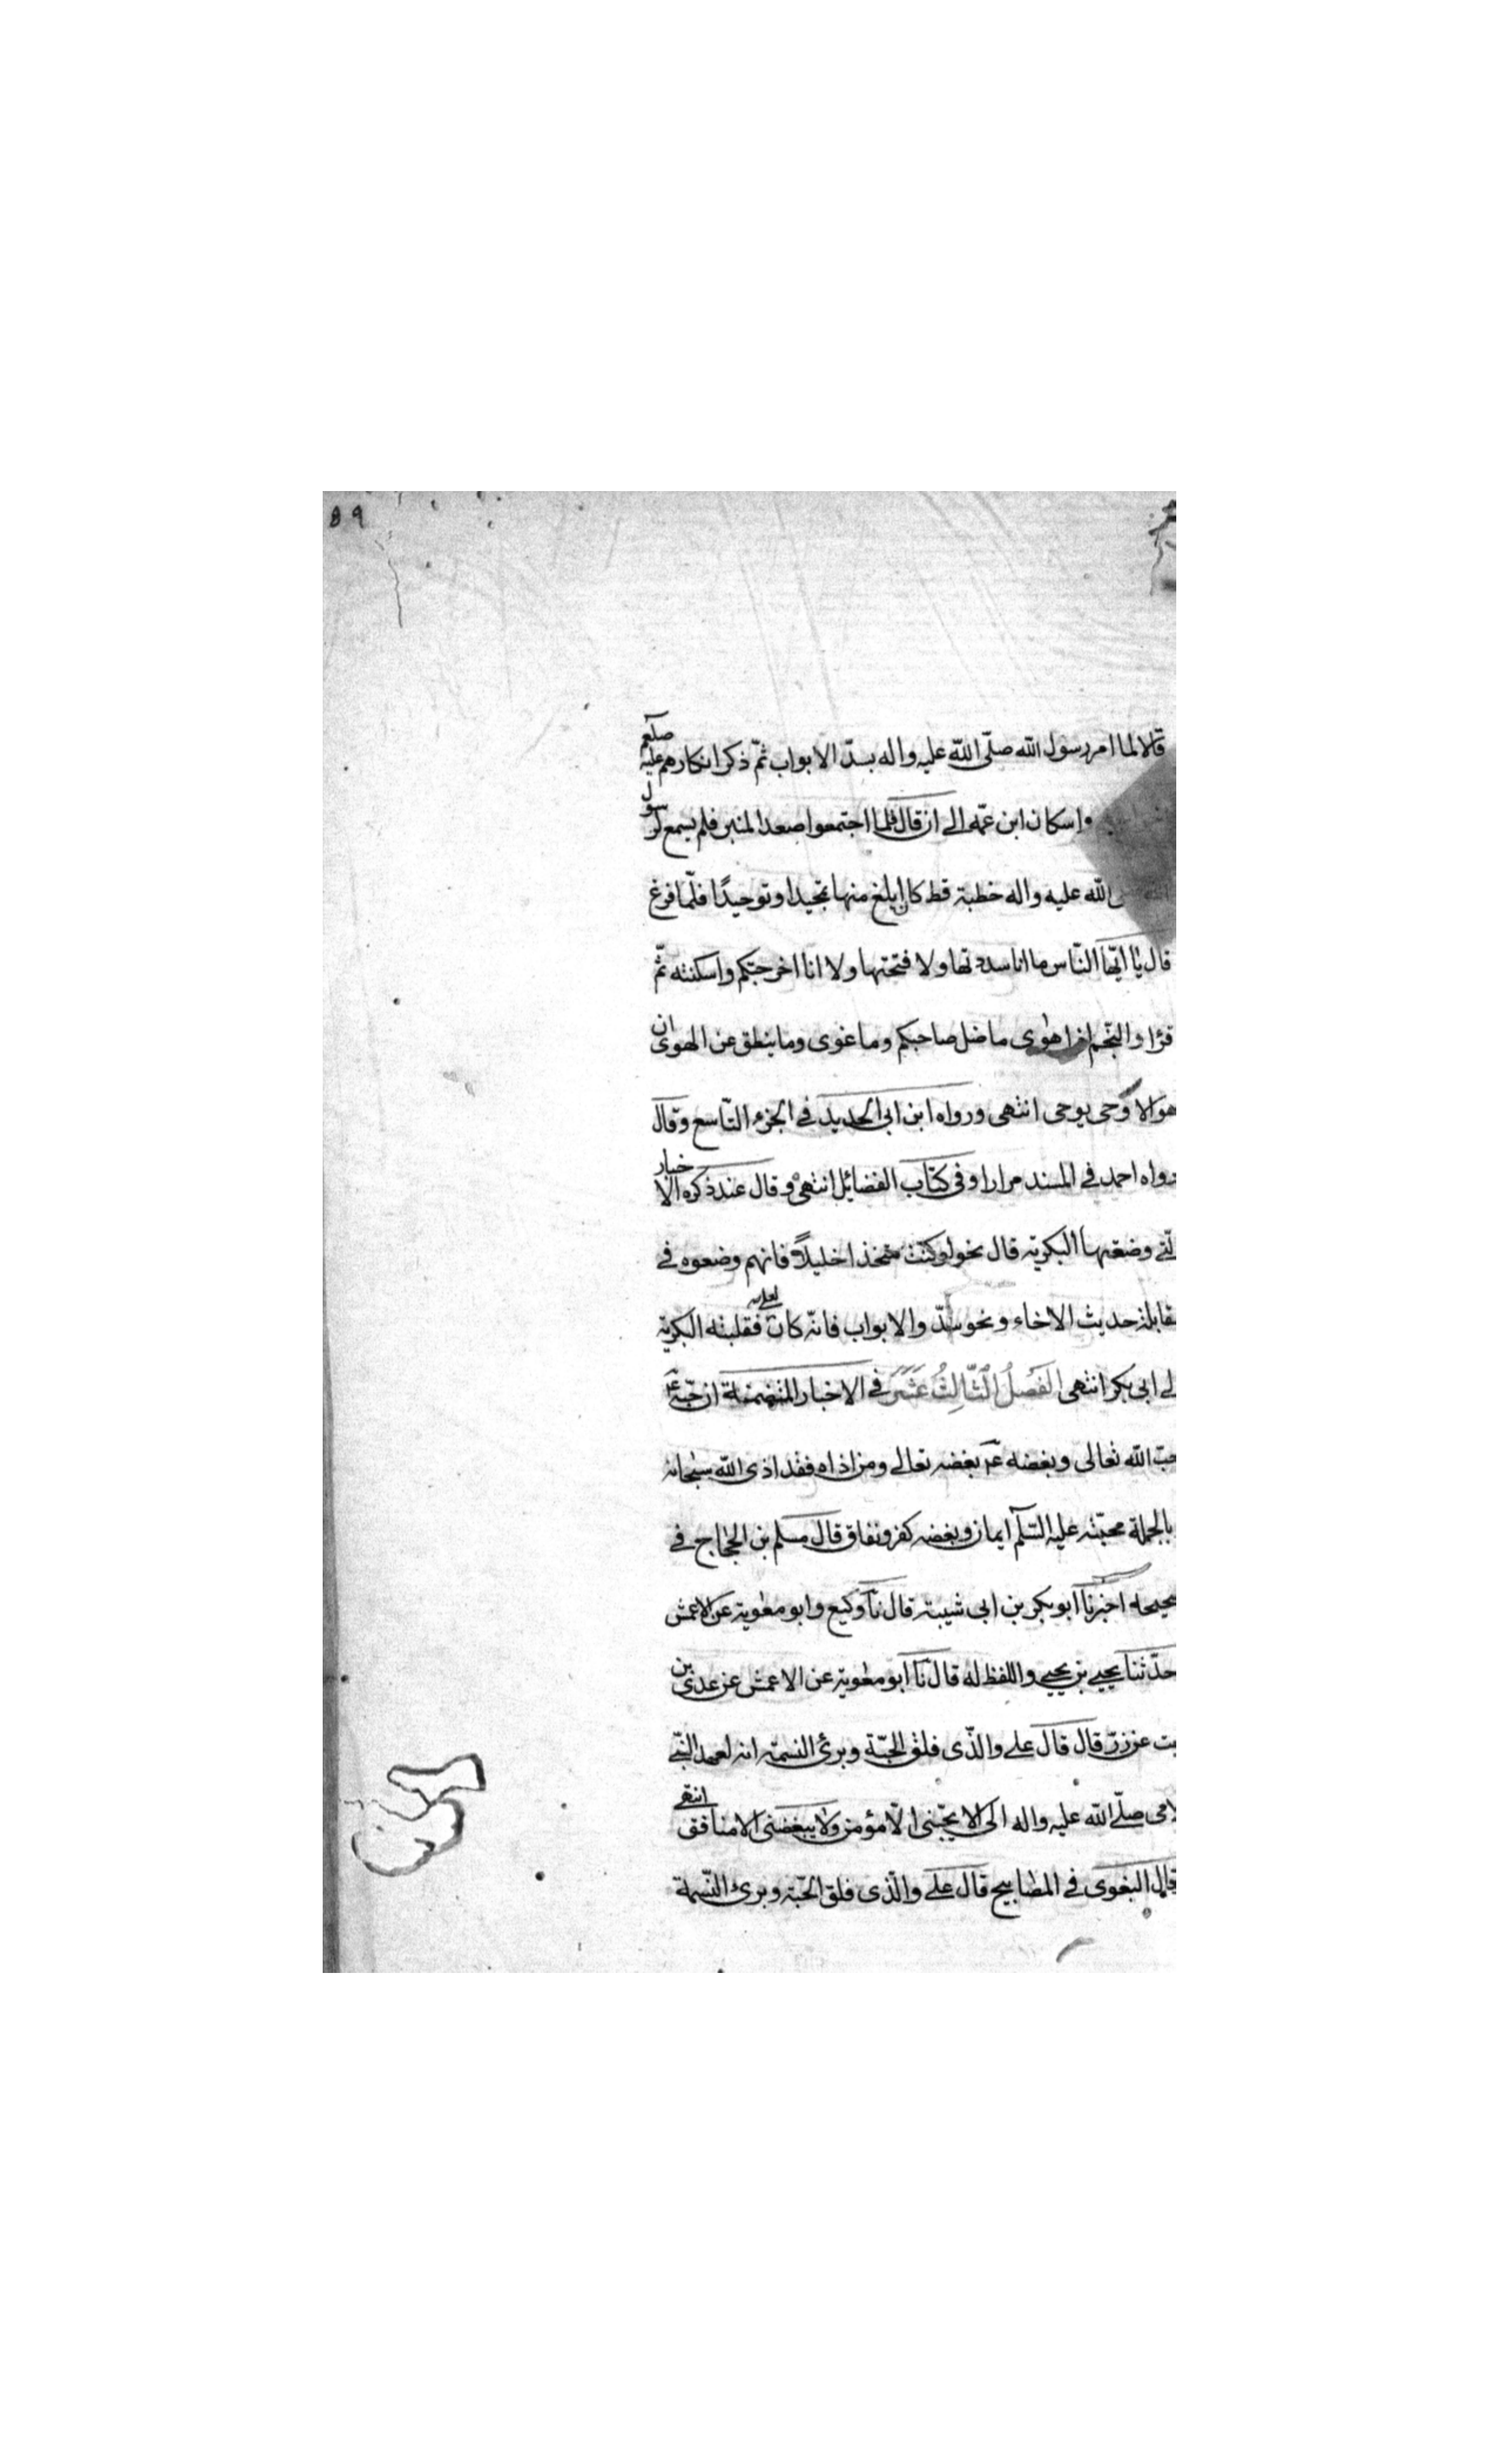 89
قالا لما امر رسول الله صلّى الله عليه واله بسدّ الابواب ثمّ ذكر انكارهم عليه صلعم
واسكان ابن عمّه الى ان قال فلما اجتمعوا صعد المنبر فلم يسمع لرسول
الله عليه واله خطبة قط كان ابلغ منها تمجيدا وتوحيدًا فلّما فرغ
قال يا ايّها النّاس ما انا سددتها ولا فتحتها ولا انا اخرجتكم واسكنته ثمّ
قرا والنّجم اذا هوى ما ضل صاحبكم وما غوى وما ينطق عن الهوى ان
هو الا وحى يوحى انتهى ورواه ابن ابى الحديد فى الجزء التاسع وقال
رواه احمد فى المسند مرارا وفى كتاب الفضائل انتهى وقال عند ذكره الاخبار
لّتى وضعتها البكرية قال نحو لو كنت متخذا خليلًا فانهم وضعوه فى
مقابلة حديث الاخاء ونحو سدّ والابواب فانّه كان لعلى فقلبته البكرية
لى ابى بكر انتهى الفَصلُ الثّالِثُ عَشَرَ فى الاخبار المتضمنة ان حبّه عم
حبّ الله تعالى وبغضه عم بغضه تعالى ومن اذاه فقد اذى الله سبحانه
بالجملة محبّته عليه السّلم ايمان وبغضه كفر ونفاق قال مسلم بن الحجاج فى
صحيحه اخبرنا ابو بكر بن ابى شيبة قال نا وكيع وابو معوية عن الاعمش
حدّثنا يحيى بن يحيى واللفظ له قال نا ابو معوية عن الاعمش عن عدى بن
بت عن زرّ قال قال على والذّى فلق الحبّة وبرئ النسمة انه لعهد النبّى
لامى صلّى الله عليه واله الىّ الا يحبّنى الّا مؤمن ولا يبغضنى الا منافق انتهى
قال البغوى فى المصابيح قال على والّذى فلق الحبّة وبرئ النّسمة